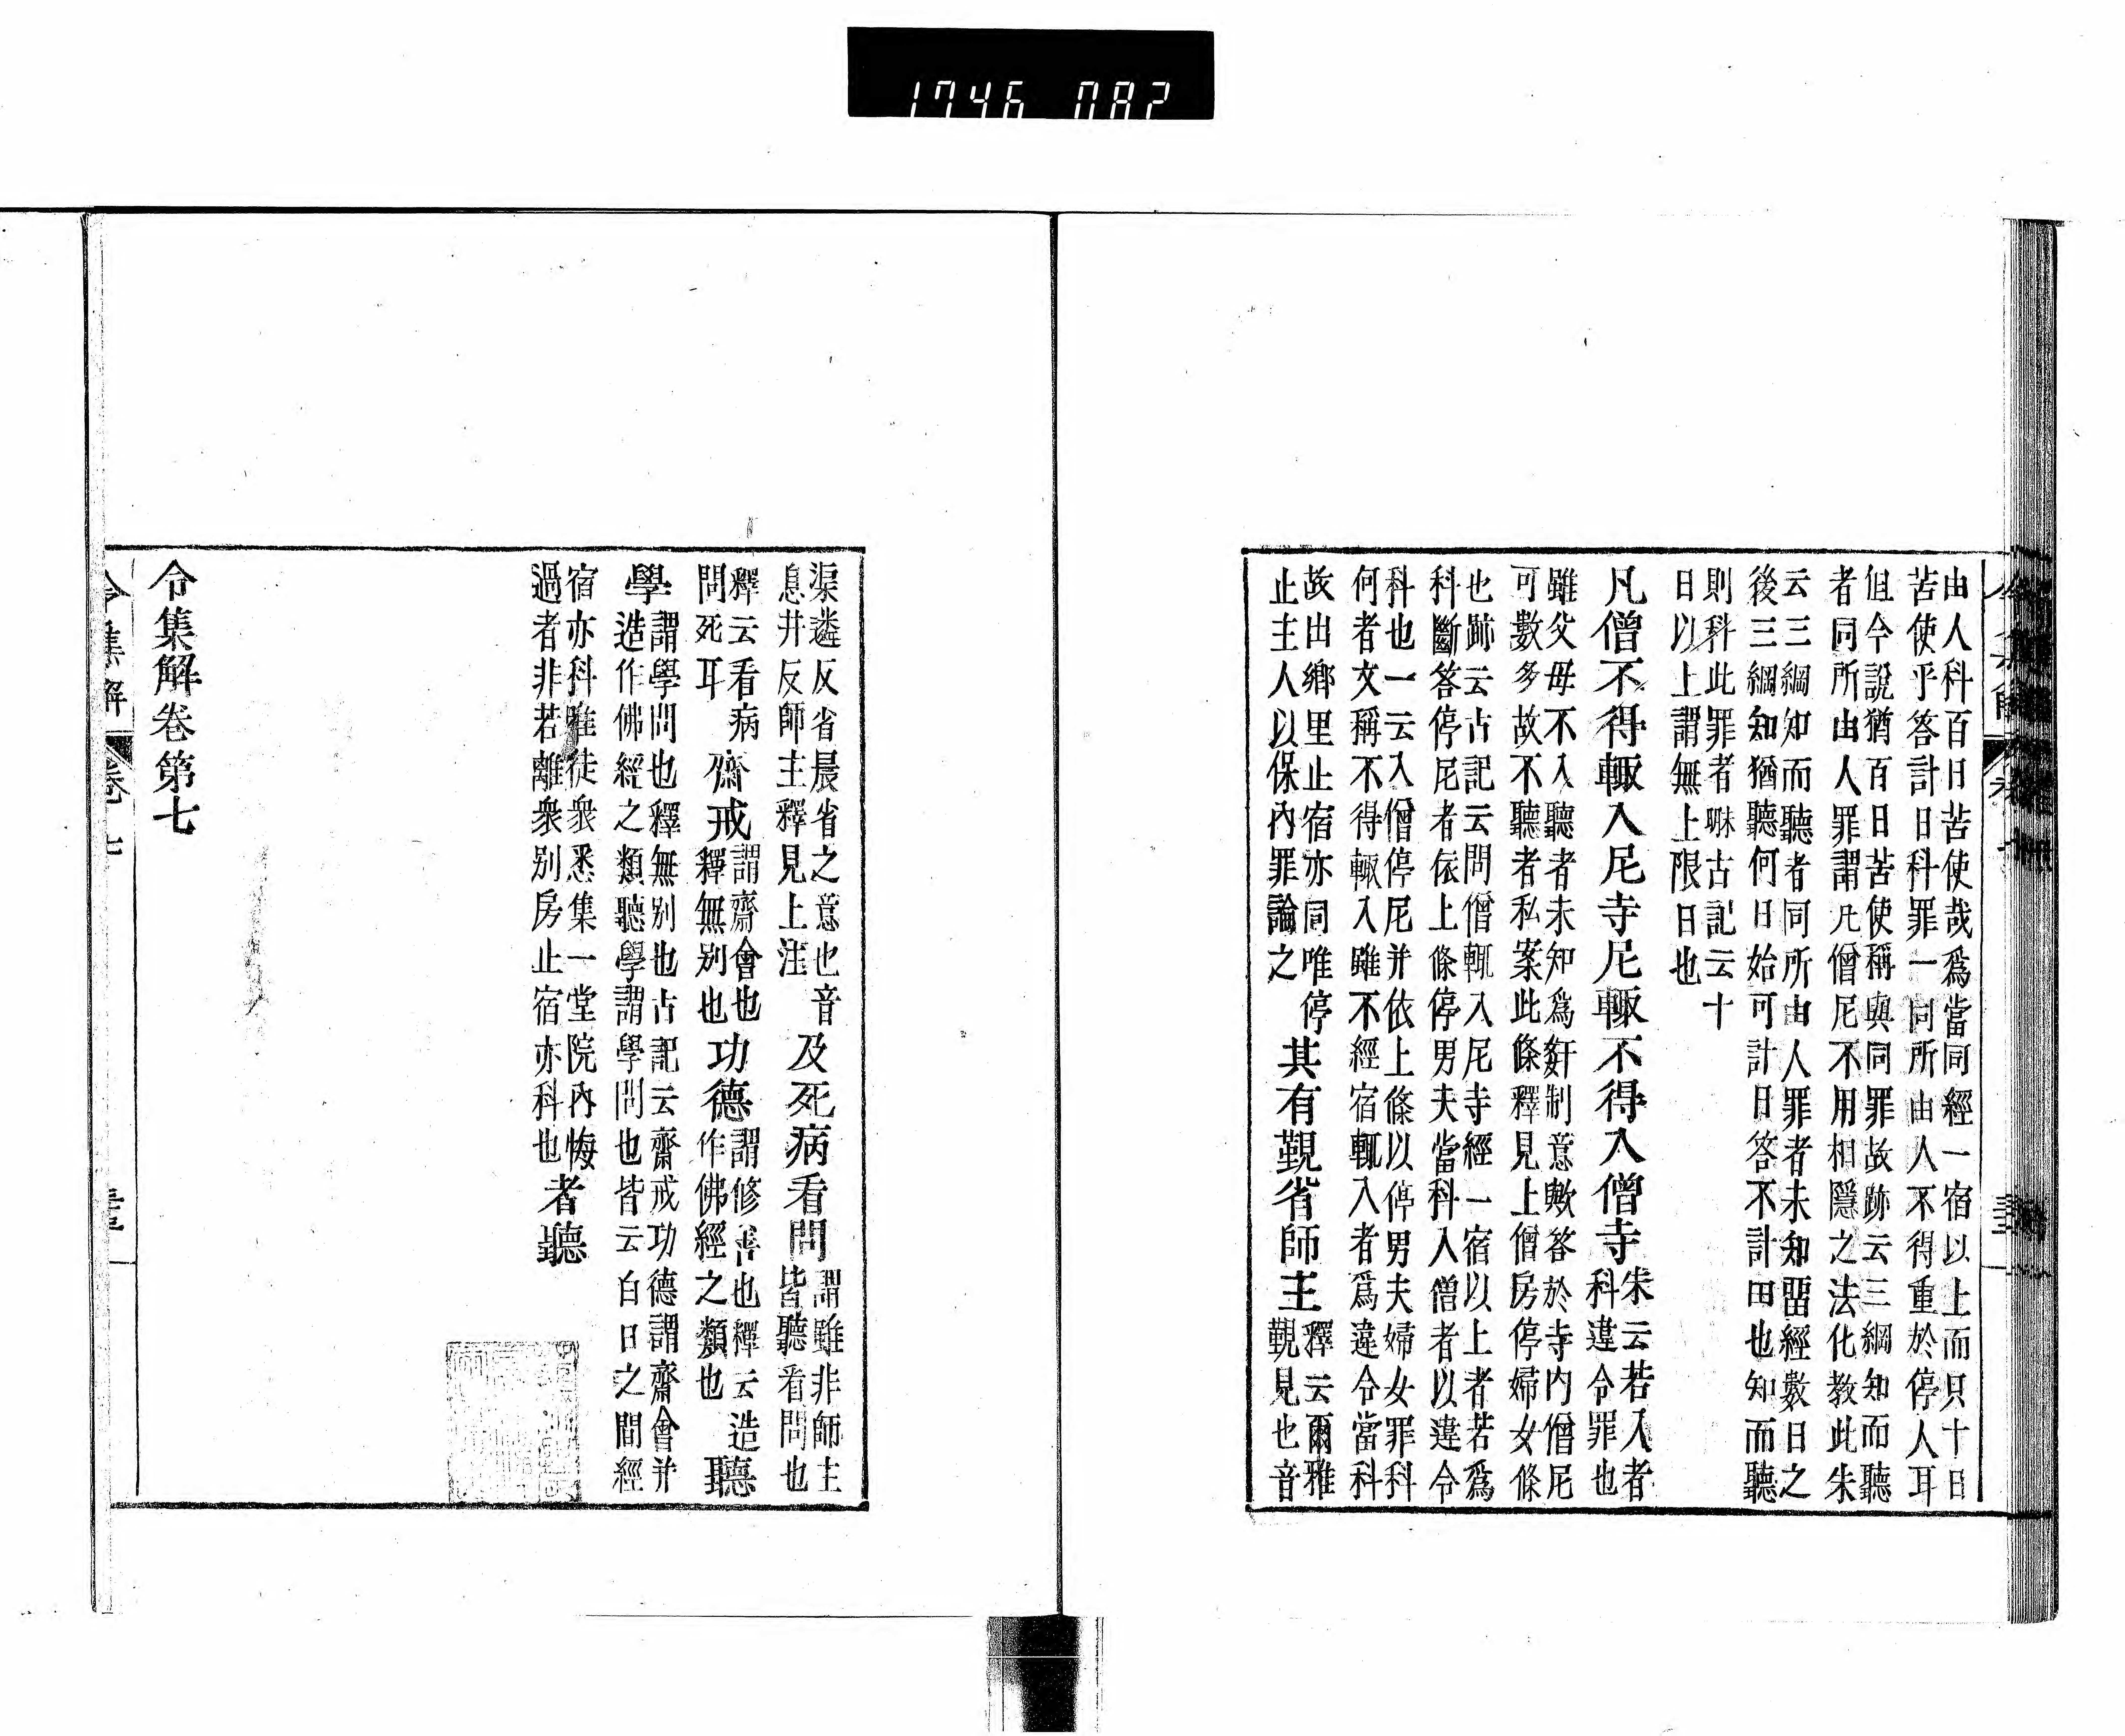 1746 082
由人科百日苦使哉爲當同經一宿以上而只十日
苦使乎答計日科罪一同所由人不得重於停人耳
但今說猶百日苦使稱與同罪故跡云三綱知而聽
者同所由人罪謂凡僧尼不用相隱之法化教此朱
云三綱知而聽者同所由人罪者未知留經數日之
後三綱知猶聽何日始可計日答不計田也知而聽
則科此罪者哧古記云十
日以上謂無上限日也
凡僧不得輙入尼寺尼輙不得入僧寺
朱云若入者
科違令罪也
雖父母不入聽者未知爲奸制意歟答於寺內僧尼
可數多故不聽者私案此條釋見上僧房停婦女條
也跡云古記云問僧輙入尼寺經一宿以上者若爲
科斷答停尼者依上條停男夫當科入僧者以違令
科也一云入僧停尼并依上條以停男夫婦女罪科
何者文稱不得輙入雖不經宿輙入者爲違令當科
故出鄉里止宿亦同唯停
止主人以保內罪論之
其有覲省師主
釋云爾雅
覲見也音
渠遴反省晨省之意也音
息井反師主釋見上注
及死病看問
謂雖非師主
皆聽看問也
釋云看病
問死耳
齋戒
謂齋會也
釋無別也
功德
謂修善也釋云造
作佛經之類也
聽
學
謂學問也釋無別也古記云齋戒功德謂齋會并
造作佛經之類聽學謂學問也皆云白日之間經
宿亦科唯徒衆悉集一堂院內悔
過者非若離衆別房止宿亦科也
者聽
令集解卷第七
令集解 卷七